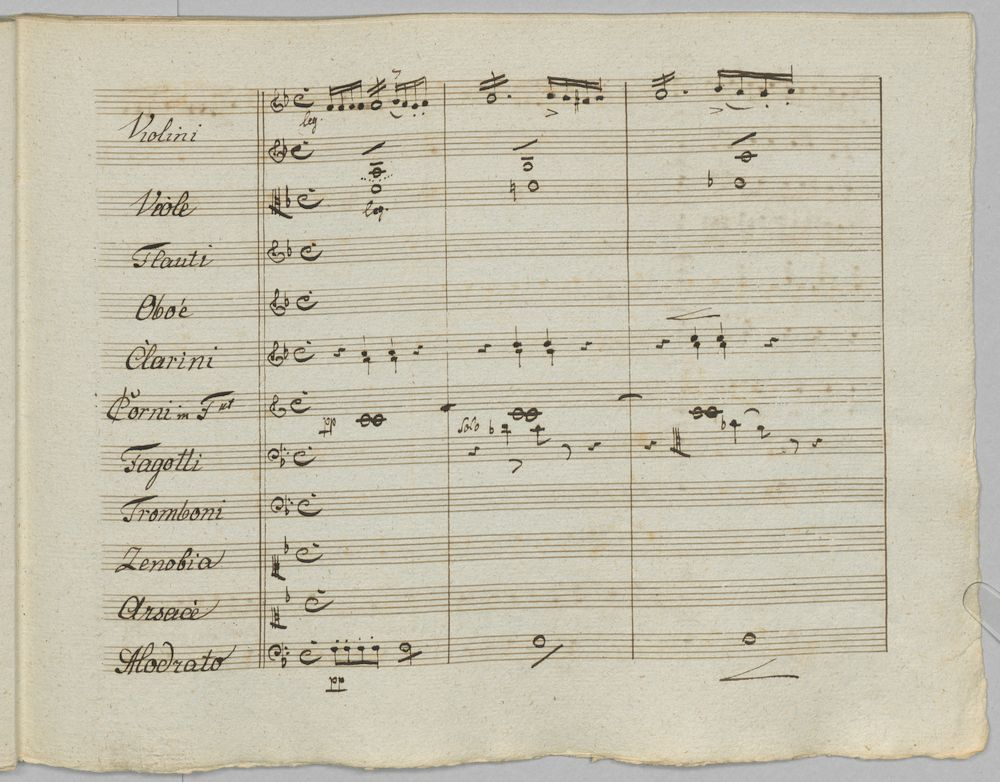 Violini
leg.
Viole
leg.
Flauti
Oboè
Clarini
Corni in F
pp
Solo
Fagotti
Tromboni
Zenobia
Arsace
Modrato
pp